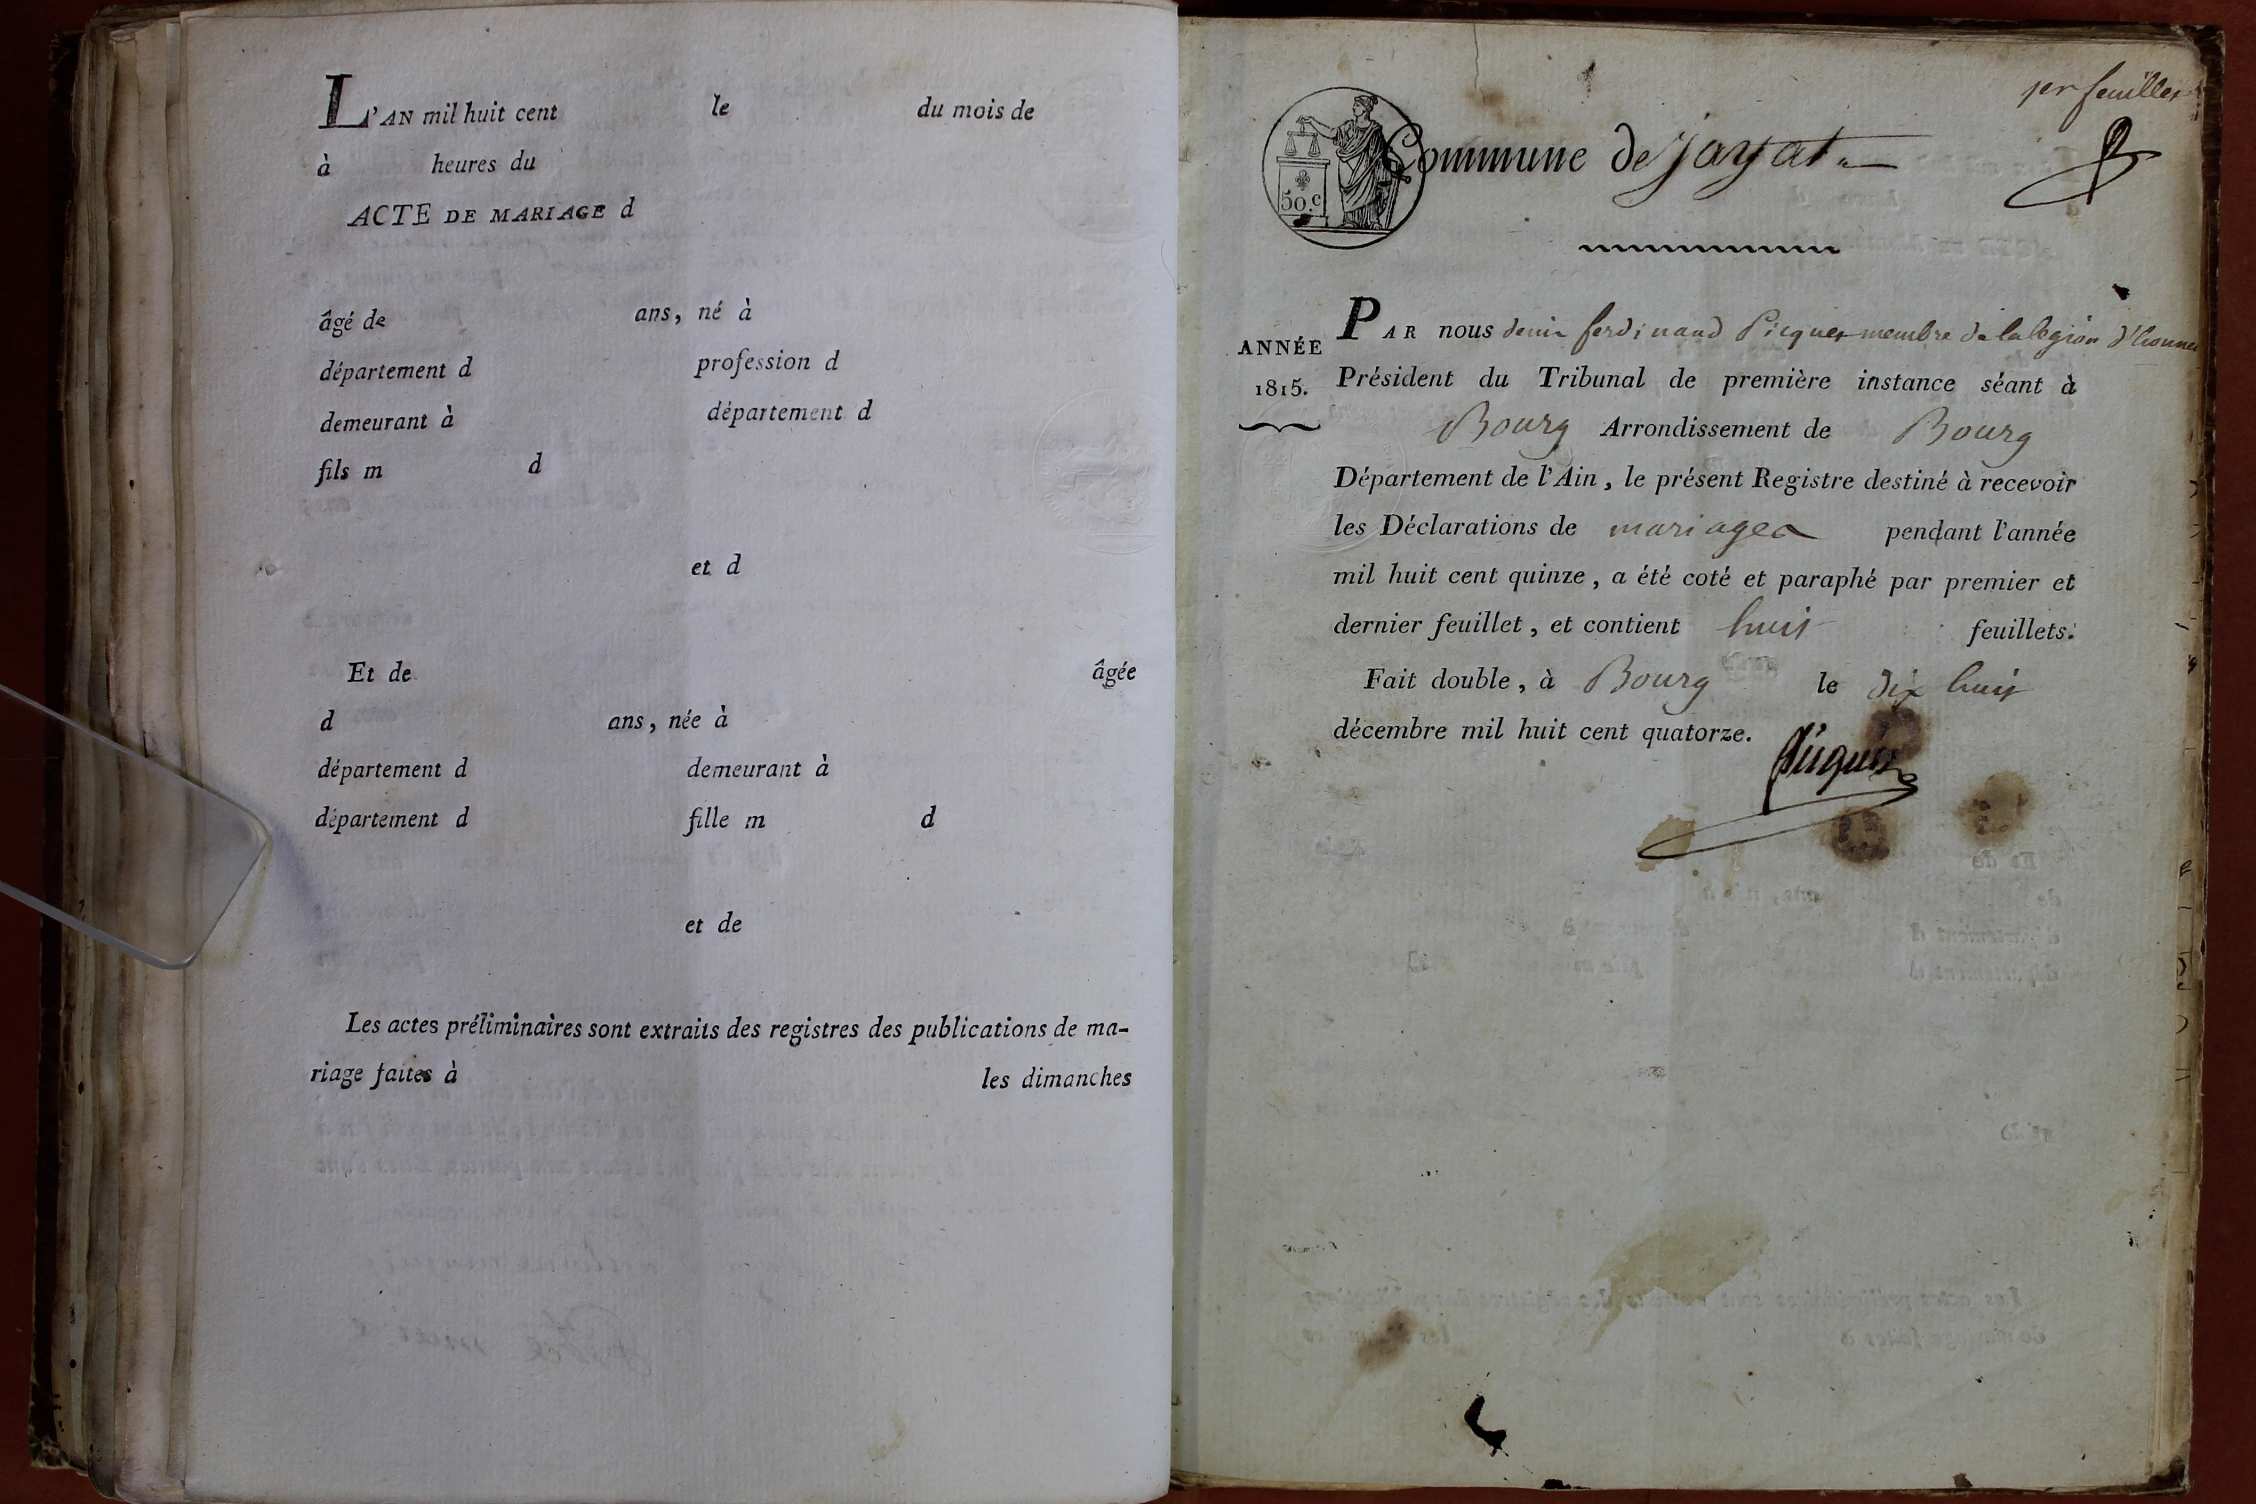 L'AN mil huit cent le du mois de
à heures du
ACTE DE MARIAGE d
âgé de ans, né à
département d profession d
demeurant à département d
fils m d
et d
Et de âgée
d ans, née à
département d demeurant à
département d fille m d
et de
Les actes préliminaires sont extraits des registres des publications de ma-
riage faites à les dimanches
1er feuillet
Commune de jayat
50.c
PAR nous denis ferdinand Picquet membre de la legion d'honneur
ANNÉE
1815.
Président du Tribunal de première instance séant à
Bourg Arrondissement de Bourg
Département de l'Ain, le présent Registre destiné à recevoir
les Déclarations de mariages pendant l'année
mil huit cent quinze, a été coté et paraphé par premier et
dernier feuillet, et contient huit feuillets.
Fait double, à Bourg le dix huit
décembre mil huit cent quatorze.
Picquet